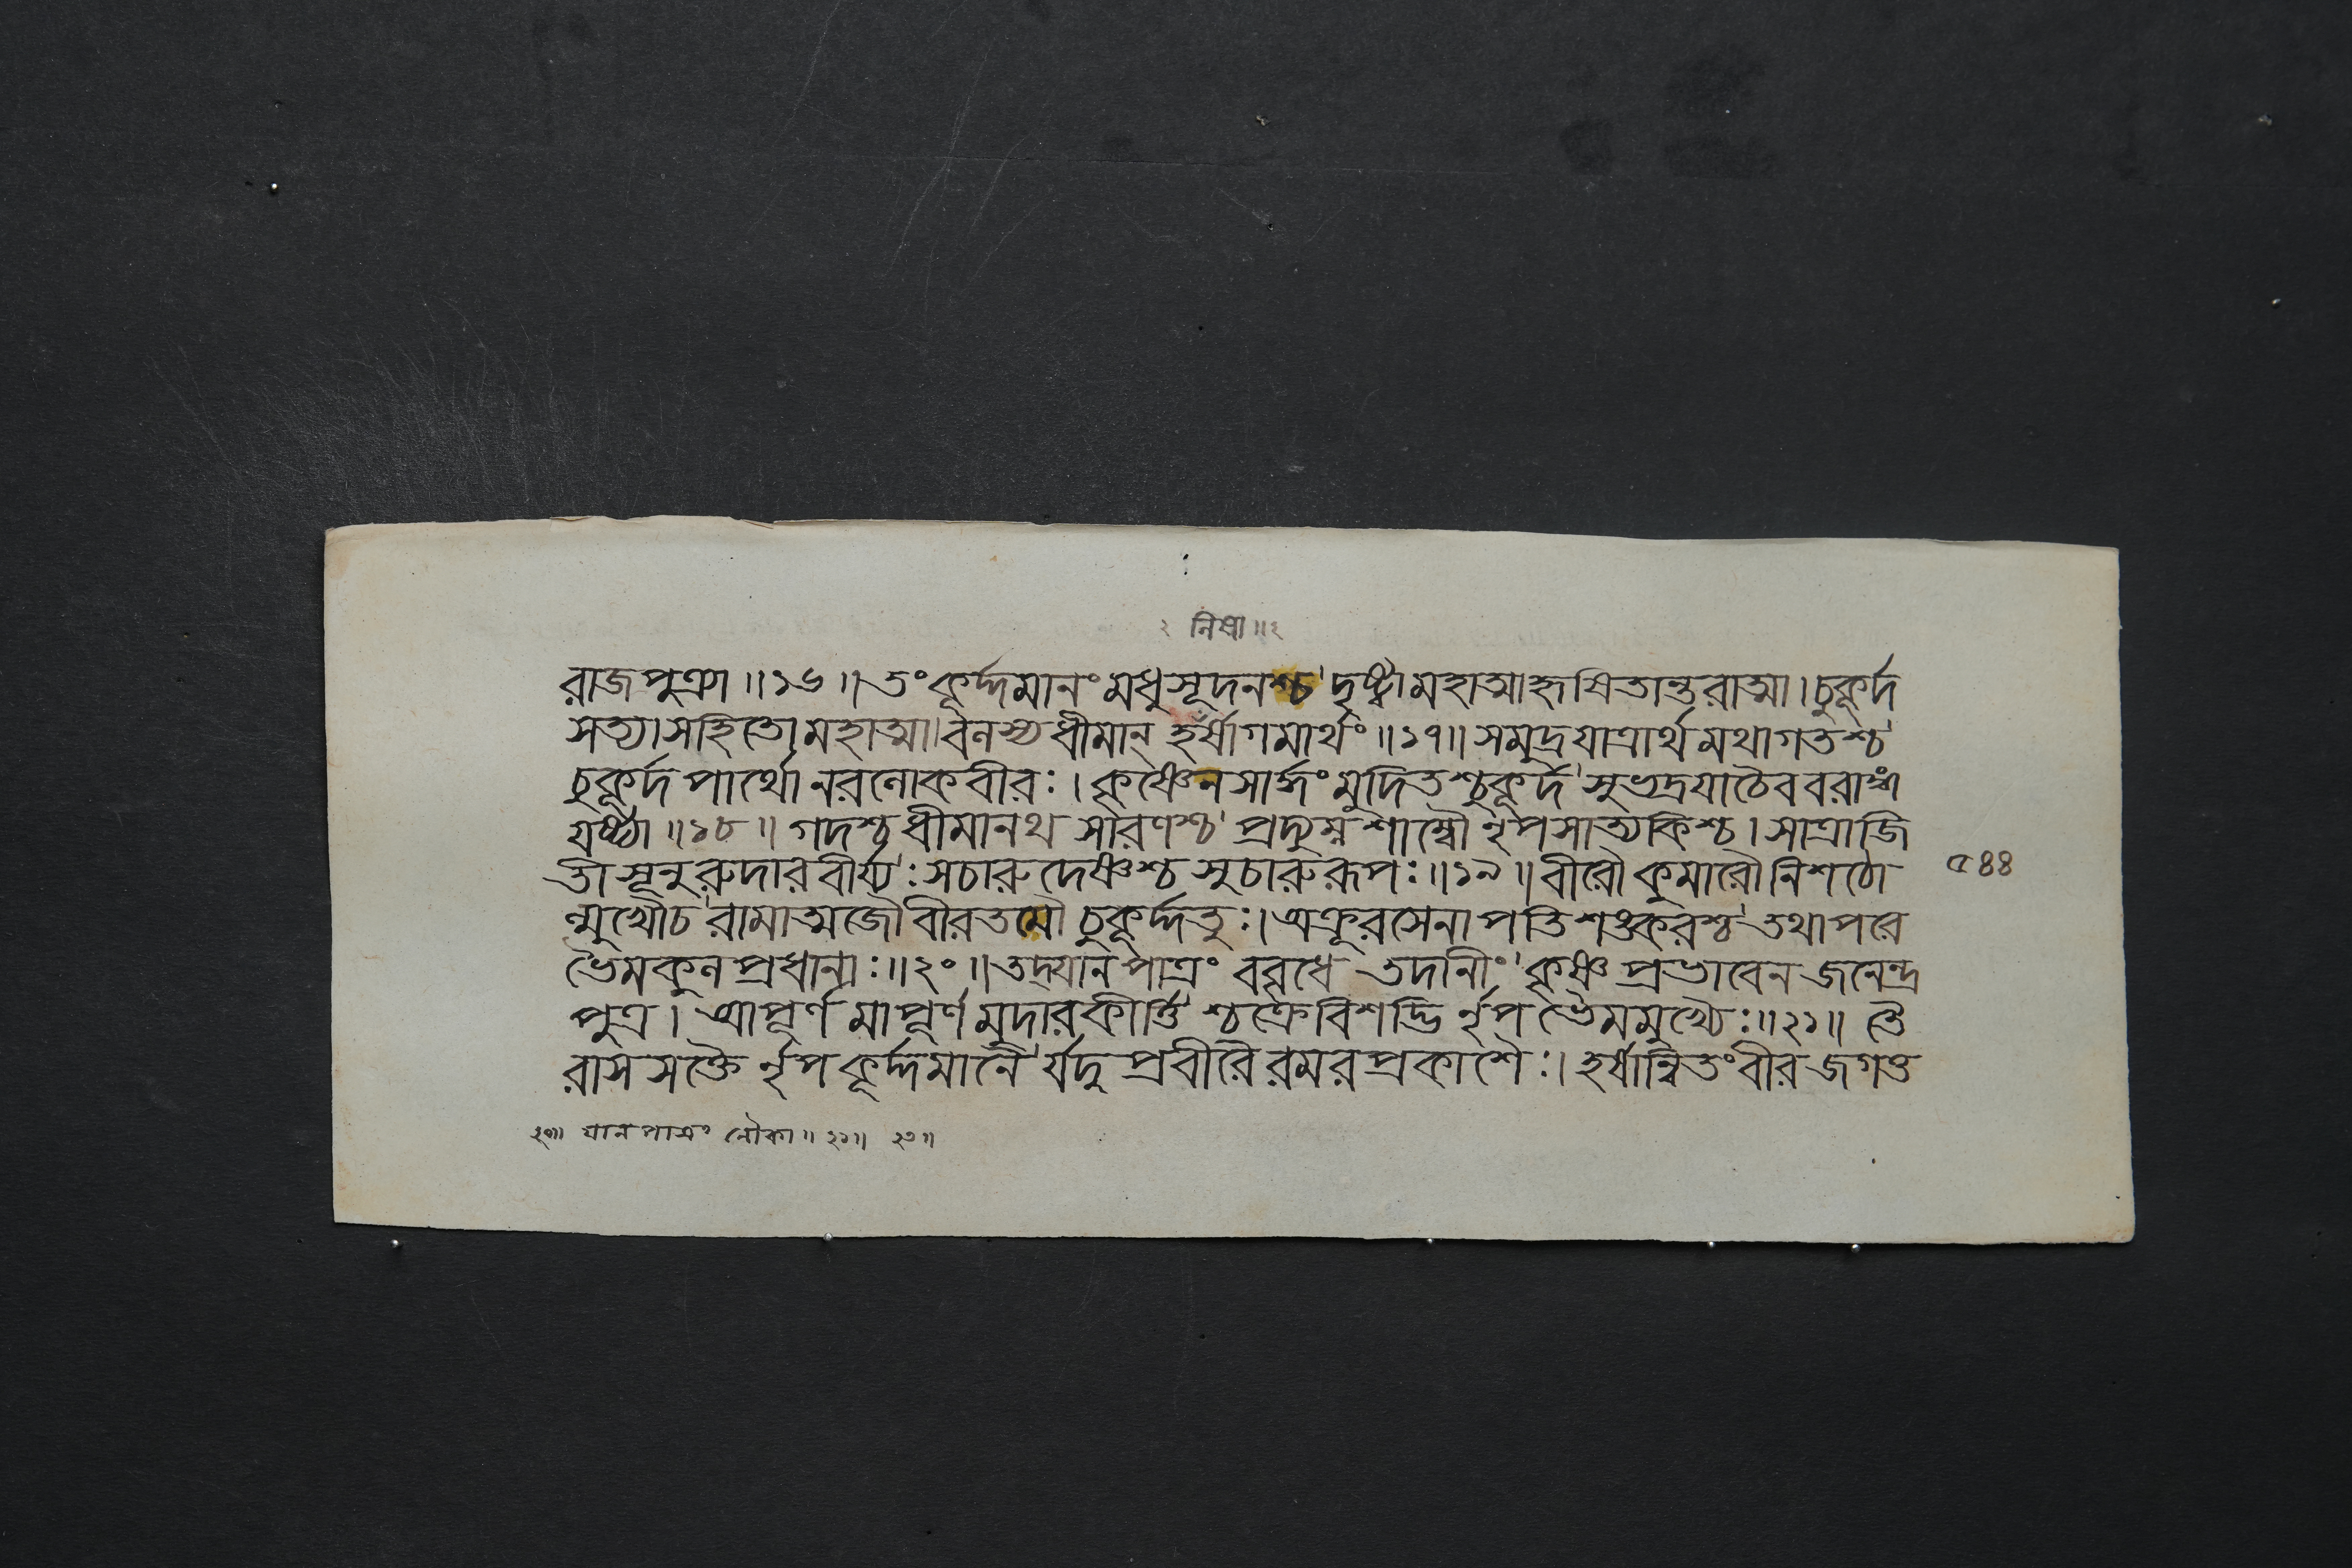 ২ নিষা॥২
রাজপুত্র্যা॥১৬॥তংকূর্দ্দমানংমধুসূদনশ্চদৃষ্ট্বামহাত্মাহৃষিতান্তরাত্মা।চুকূর্দ
সত্যাসহিতোমহাত্মাবলস্যধীমান্হর্ষাগমার্থং॥১৭॥সমুদ্রযাত্রার্থমথাগতশ্চ
চুকূর্দপার্থোনরলোকবীরঃ।কৃষ্ণেনসার্দ্ধংমুদিতশ্চুকূর্দসুভদ্রযাচৈববরাঙ্গ
যষ্ট্যা॥১৮॥গদশ্চধীমানথসারণশ্চপ্রদ্যুম্নশাম্বৌনৃপসাত্যকিশ্চ।সাত্রাজি
তীসূনুরুদারবীর্য্যঃসচারুদেষ্ণশ্চসুচারুরূপঃ॥১৯॥বীরৌকুমারৌনিশঠো
ন্মুখৌচরামাত্মজৌবীরতমৌচুকূর্দ্দতুঃ।অক্রূরসেনাপতিশঙ্করশ্চতথাপরে
ভৈমকুলপ্রধানাঃ॥২০॥তদ্যানপাত্রংববৃধেতদানীংকৃষ্ণপ্রভাবেনজনেন্দ্র
পুত্র।আপূর্ণমাপূর্ণমুদারকীর্ত্তিশ্চক্রেবিশদ্ভির্নৃপভৈমমুখ্যৈঃ॥২১॥তৈ
রাসসক্তৈর্নৃপকূর্দ্দমানৈর্যদুপ্রবীরৈরমরপ্রকাশৈঃ।হর্ষান্বিতংবীরজগত্ত
৫৪৪
২০॥ যানপাত্রং নৌকা॥২১॥ ২৩॥